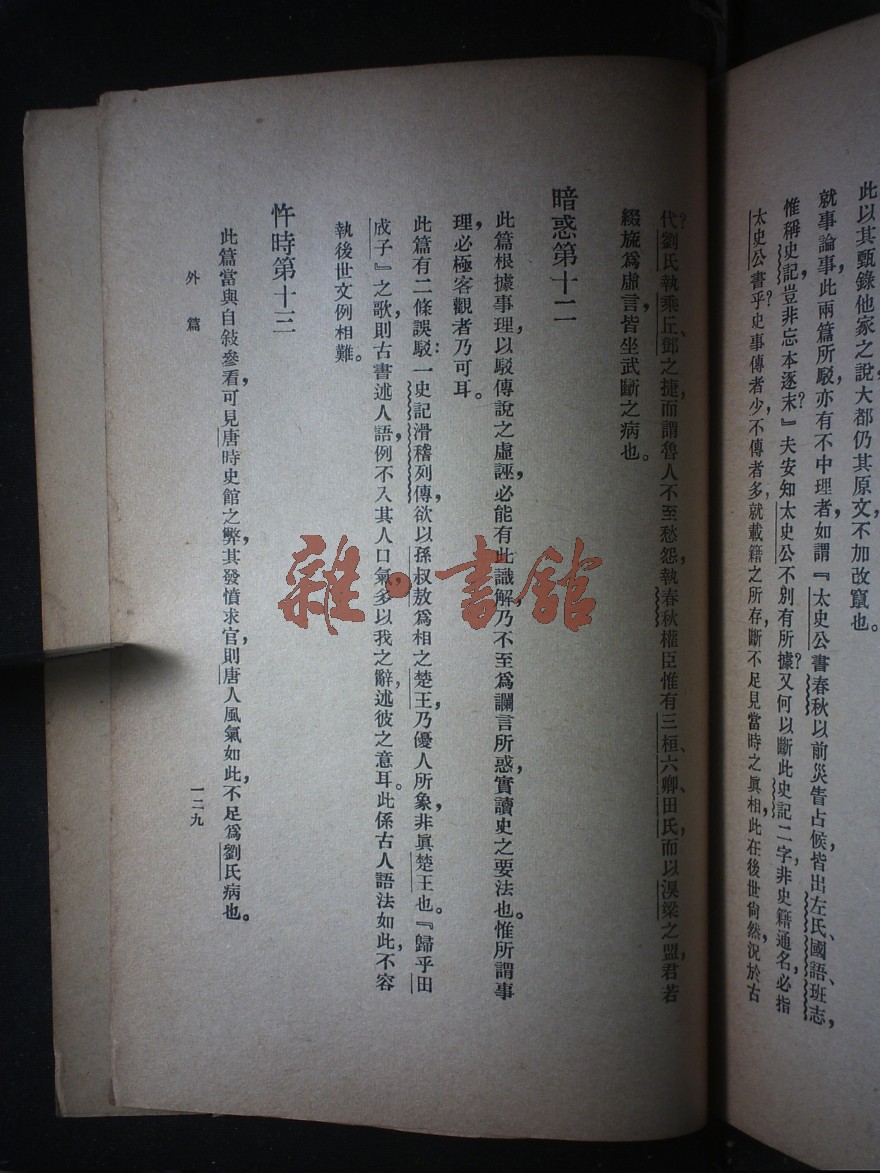 此以其甄錄他家之說大都仍其原文，不加改竄也。
就事論事，此兩篇所駁，亦有不中理者，如謂『太史公書春秋以前，災眚占候，皆出左氏、國語、班志，
惟稱史記，豈非忘本逐末？』夫安知太史公不別有所據？又何以斷此史記二字，非史籍通名，必指
太史公書乎？史事傳者少，不傳者多，就載籍之所存，斷不足見當時之眞相，此在後世尙然，況於古
代？劉氏執乘丘、鄑之捷，而謂魯人不至愁怨，執春秋權臣，惟有三桓、六卿、田氏，而以湨梁之盟，君若
綴旒，爲虛言，皆坐武斷之病也。
暗惑第十二
此篇根據事理，以駁傳說之虛誣，必能有此識解，乃不至爲讕言所惑，實讀史之要法也。惟所謂事
理，必極客觀者乃可耳。
此篇有二條誤駁：一史記滑稽列傳，欲以孫叔敖爲相之楚王，乃優人所象，非眞楚王也。『歸乎田
成子』之歌，則古書述人語，例不入其人口氣，多以我之辭，述彼之意耳。此係古人語法如此，不容
執後世文例相難。
忤時第十三
此篇當與自敍參看，可見唐時史館之弊，其發憤求官，則唐人風氣如此，不足爲劉氏病也。
外篇
一二九
雜·書館